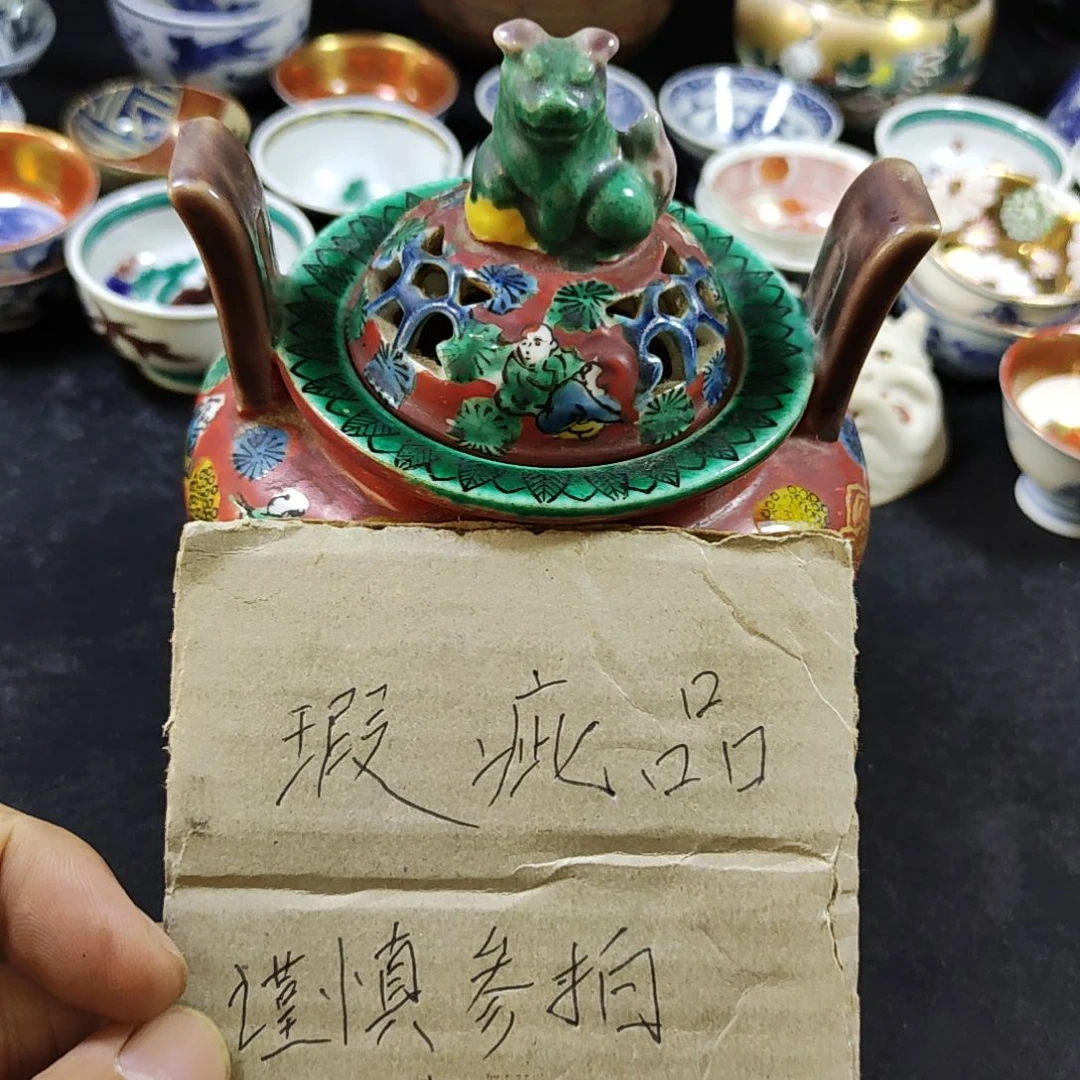 瑕疵品
谨慎参拍